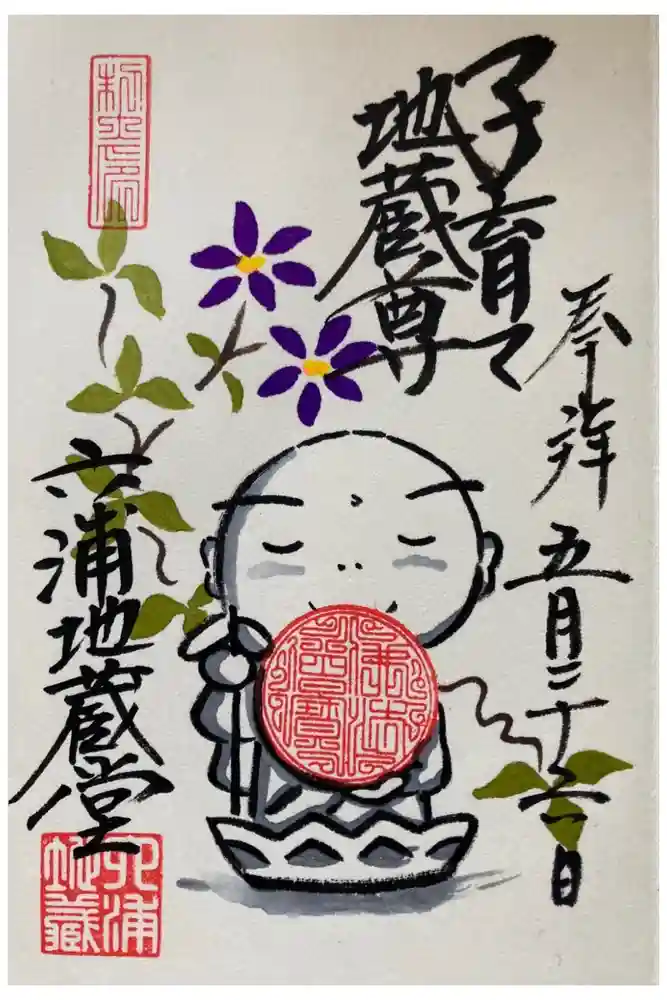 奉拝 五月二十日
子育て
地蔵尊
佛法
僧寶
六浦地蔵堂
六浦
地藏